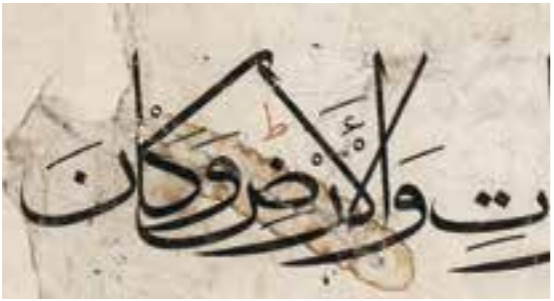 تِ وَالْأَرْضِ ط وَكَانَ